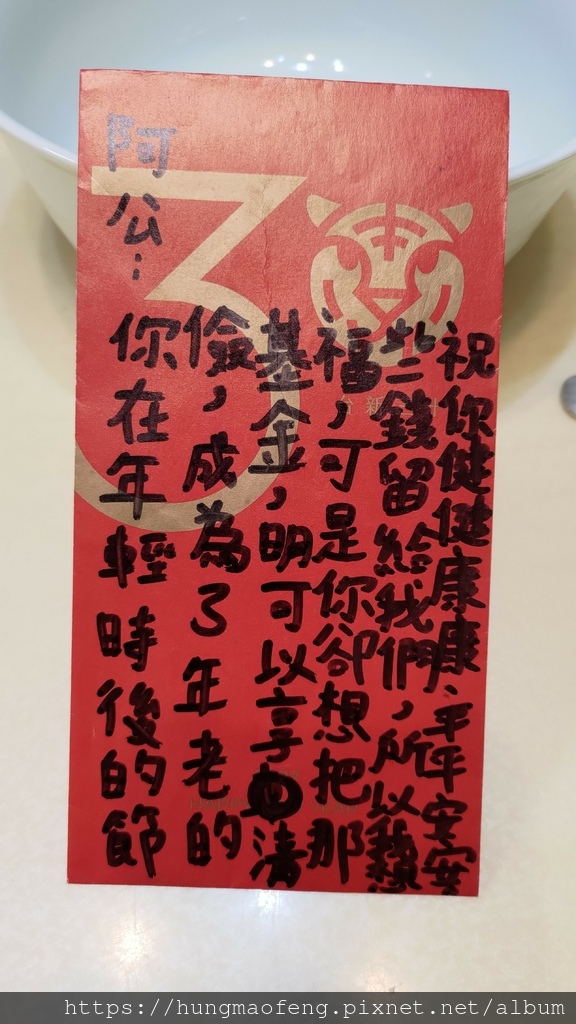 阿公：
你在年輕時後的節
儉，成為了年老的
基金，明可以享清
福，可是你卻想把那
些錢留給我們，所以
祝你健健康康、平平安安
30
台新
https://hungmaofeng.pixnet.net/album